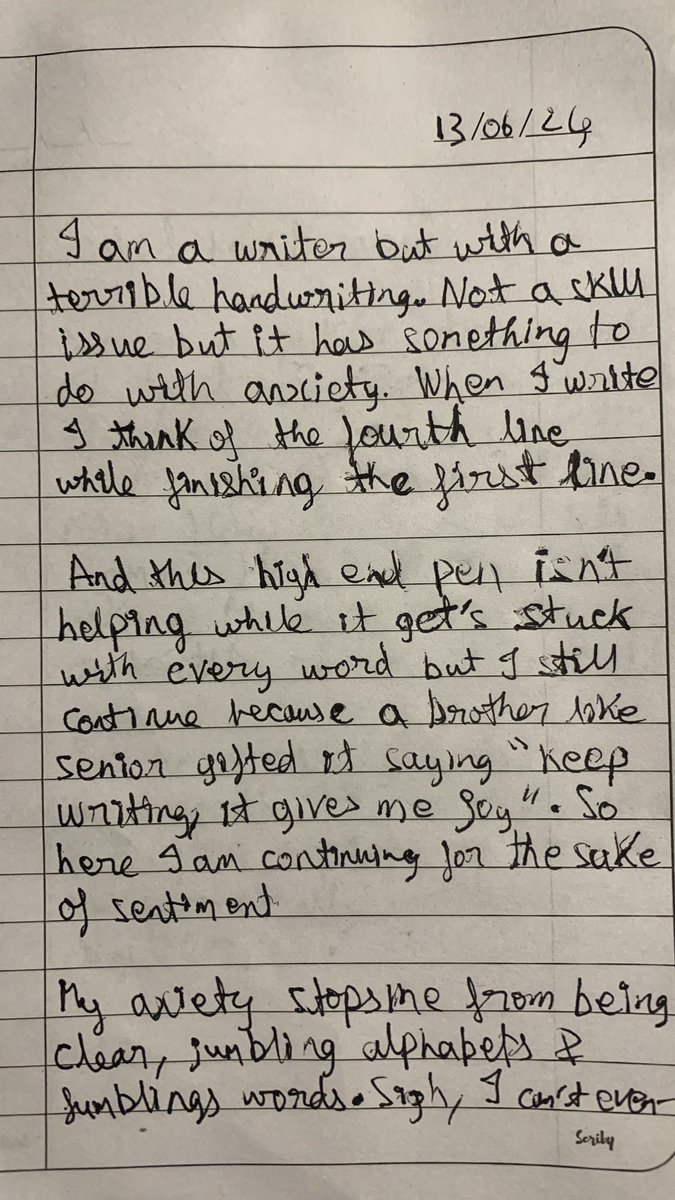 13/06/24
I am a writer but with a
terrible handwriting. Not a skill
issue but it has sonething to
do with anxciety. When I write
I think of the fourth line
while finishing the first line.
And this high end pen isn't
helping while it get's stuck
with every word but I still
continue because a brother like
senior gifted it saying "keep
writing, it gives me joy". So
here I am continuing for the sake
of sentiment
My axiety stops me from being
clear, jumbling alphabets &
fumblings words. Sigh, I can'st even-
Scriby